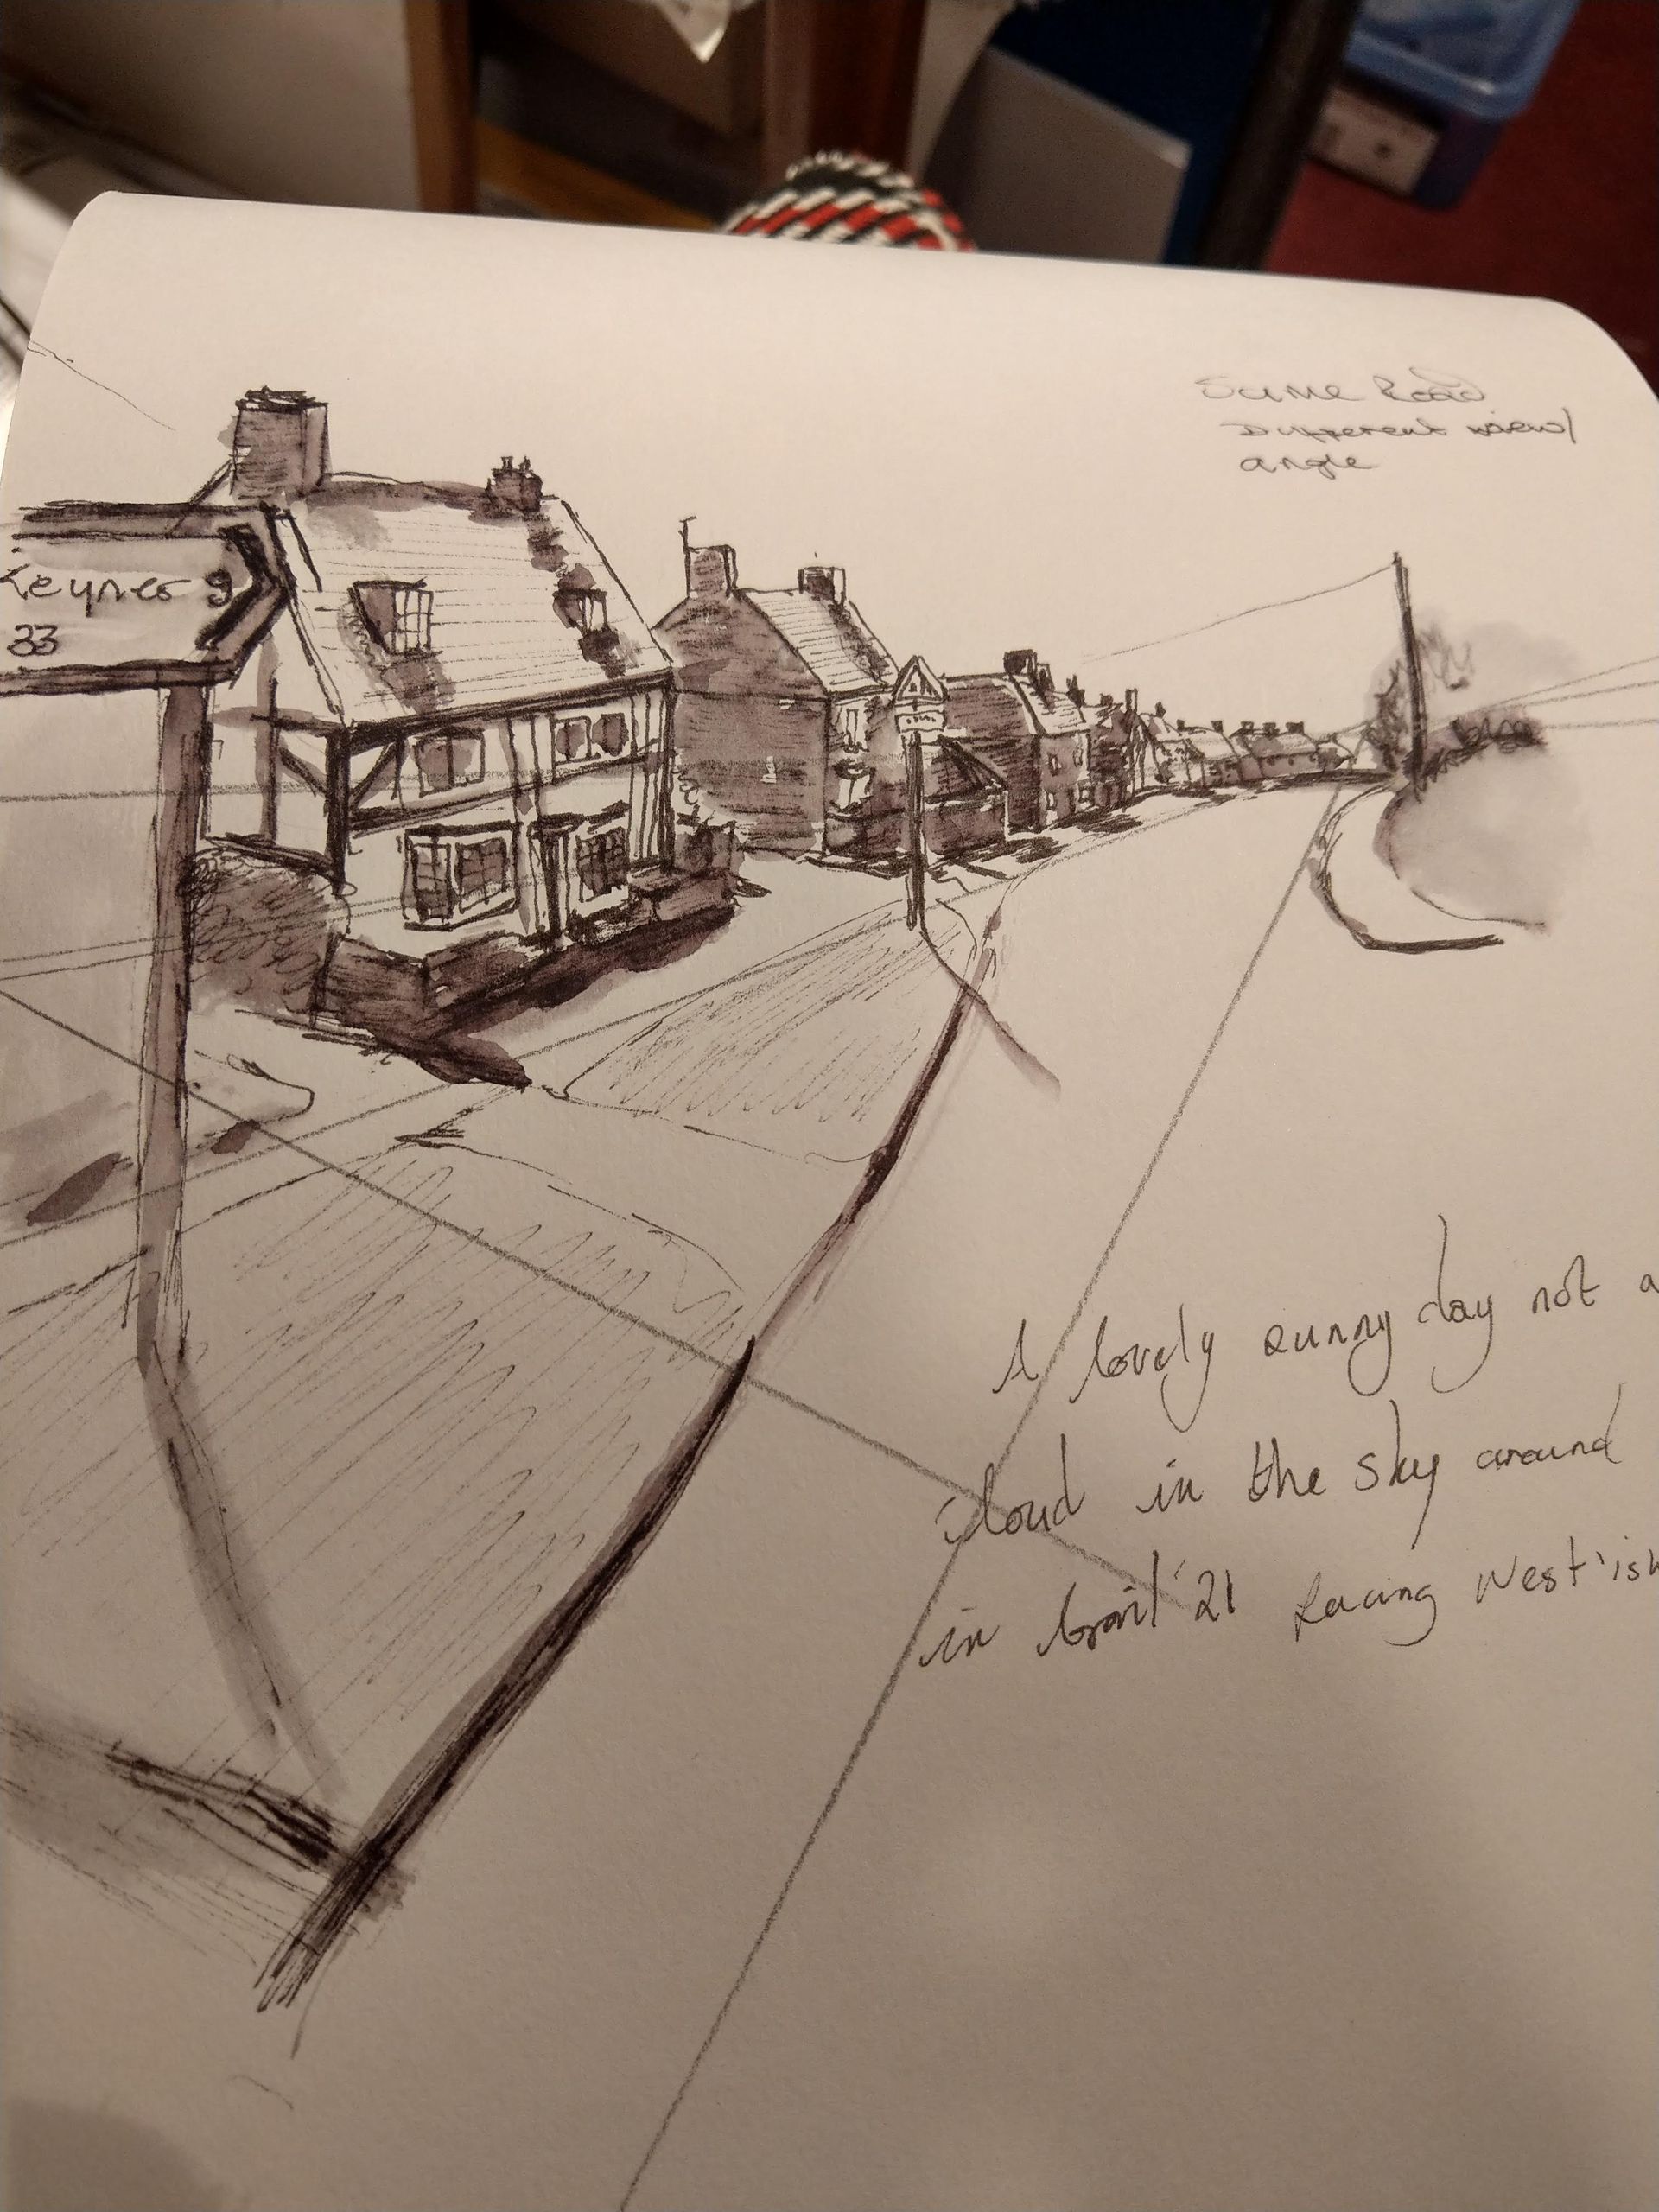 Same Road
Different view/
angle
Keynes 9
33
A lovely sunny day not a
cloud in the sky around
in April '21 facing West'ish